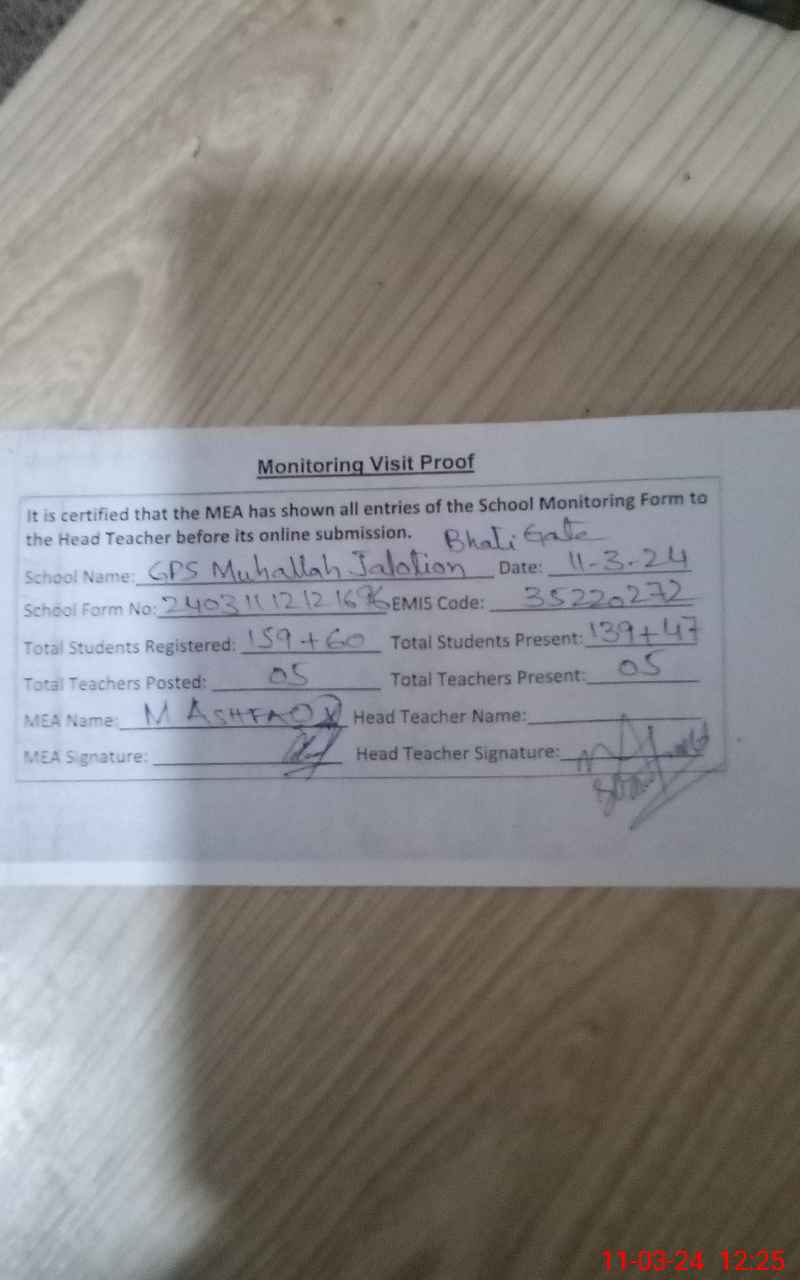 Monitoring Visit Proof
It is certified that the MEA has shown all entries of the School Monitoring Form to
the Head Teacher before its online submission.
Bhati Gate
School Name: GPS Muhallah Jalotian Date: 11-3-24
School Form No: 2403111212 1696 EMIS Code: 35220272
Total Students Registered: 159+60 Total Students Present: 139+47
Total Teachers Posted: 05 Total Teachers Present: 05
MEA Name: M ASHFAQ Head Teacher Name:
MEA Signature: Head Teacher Signature:
11-03-24 12:25